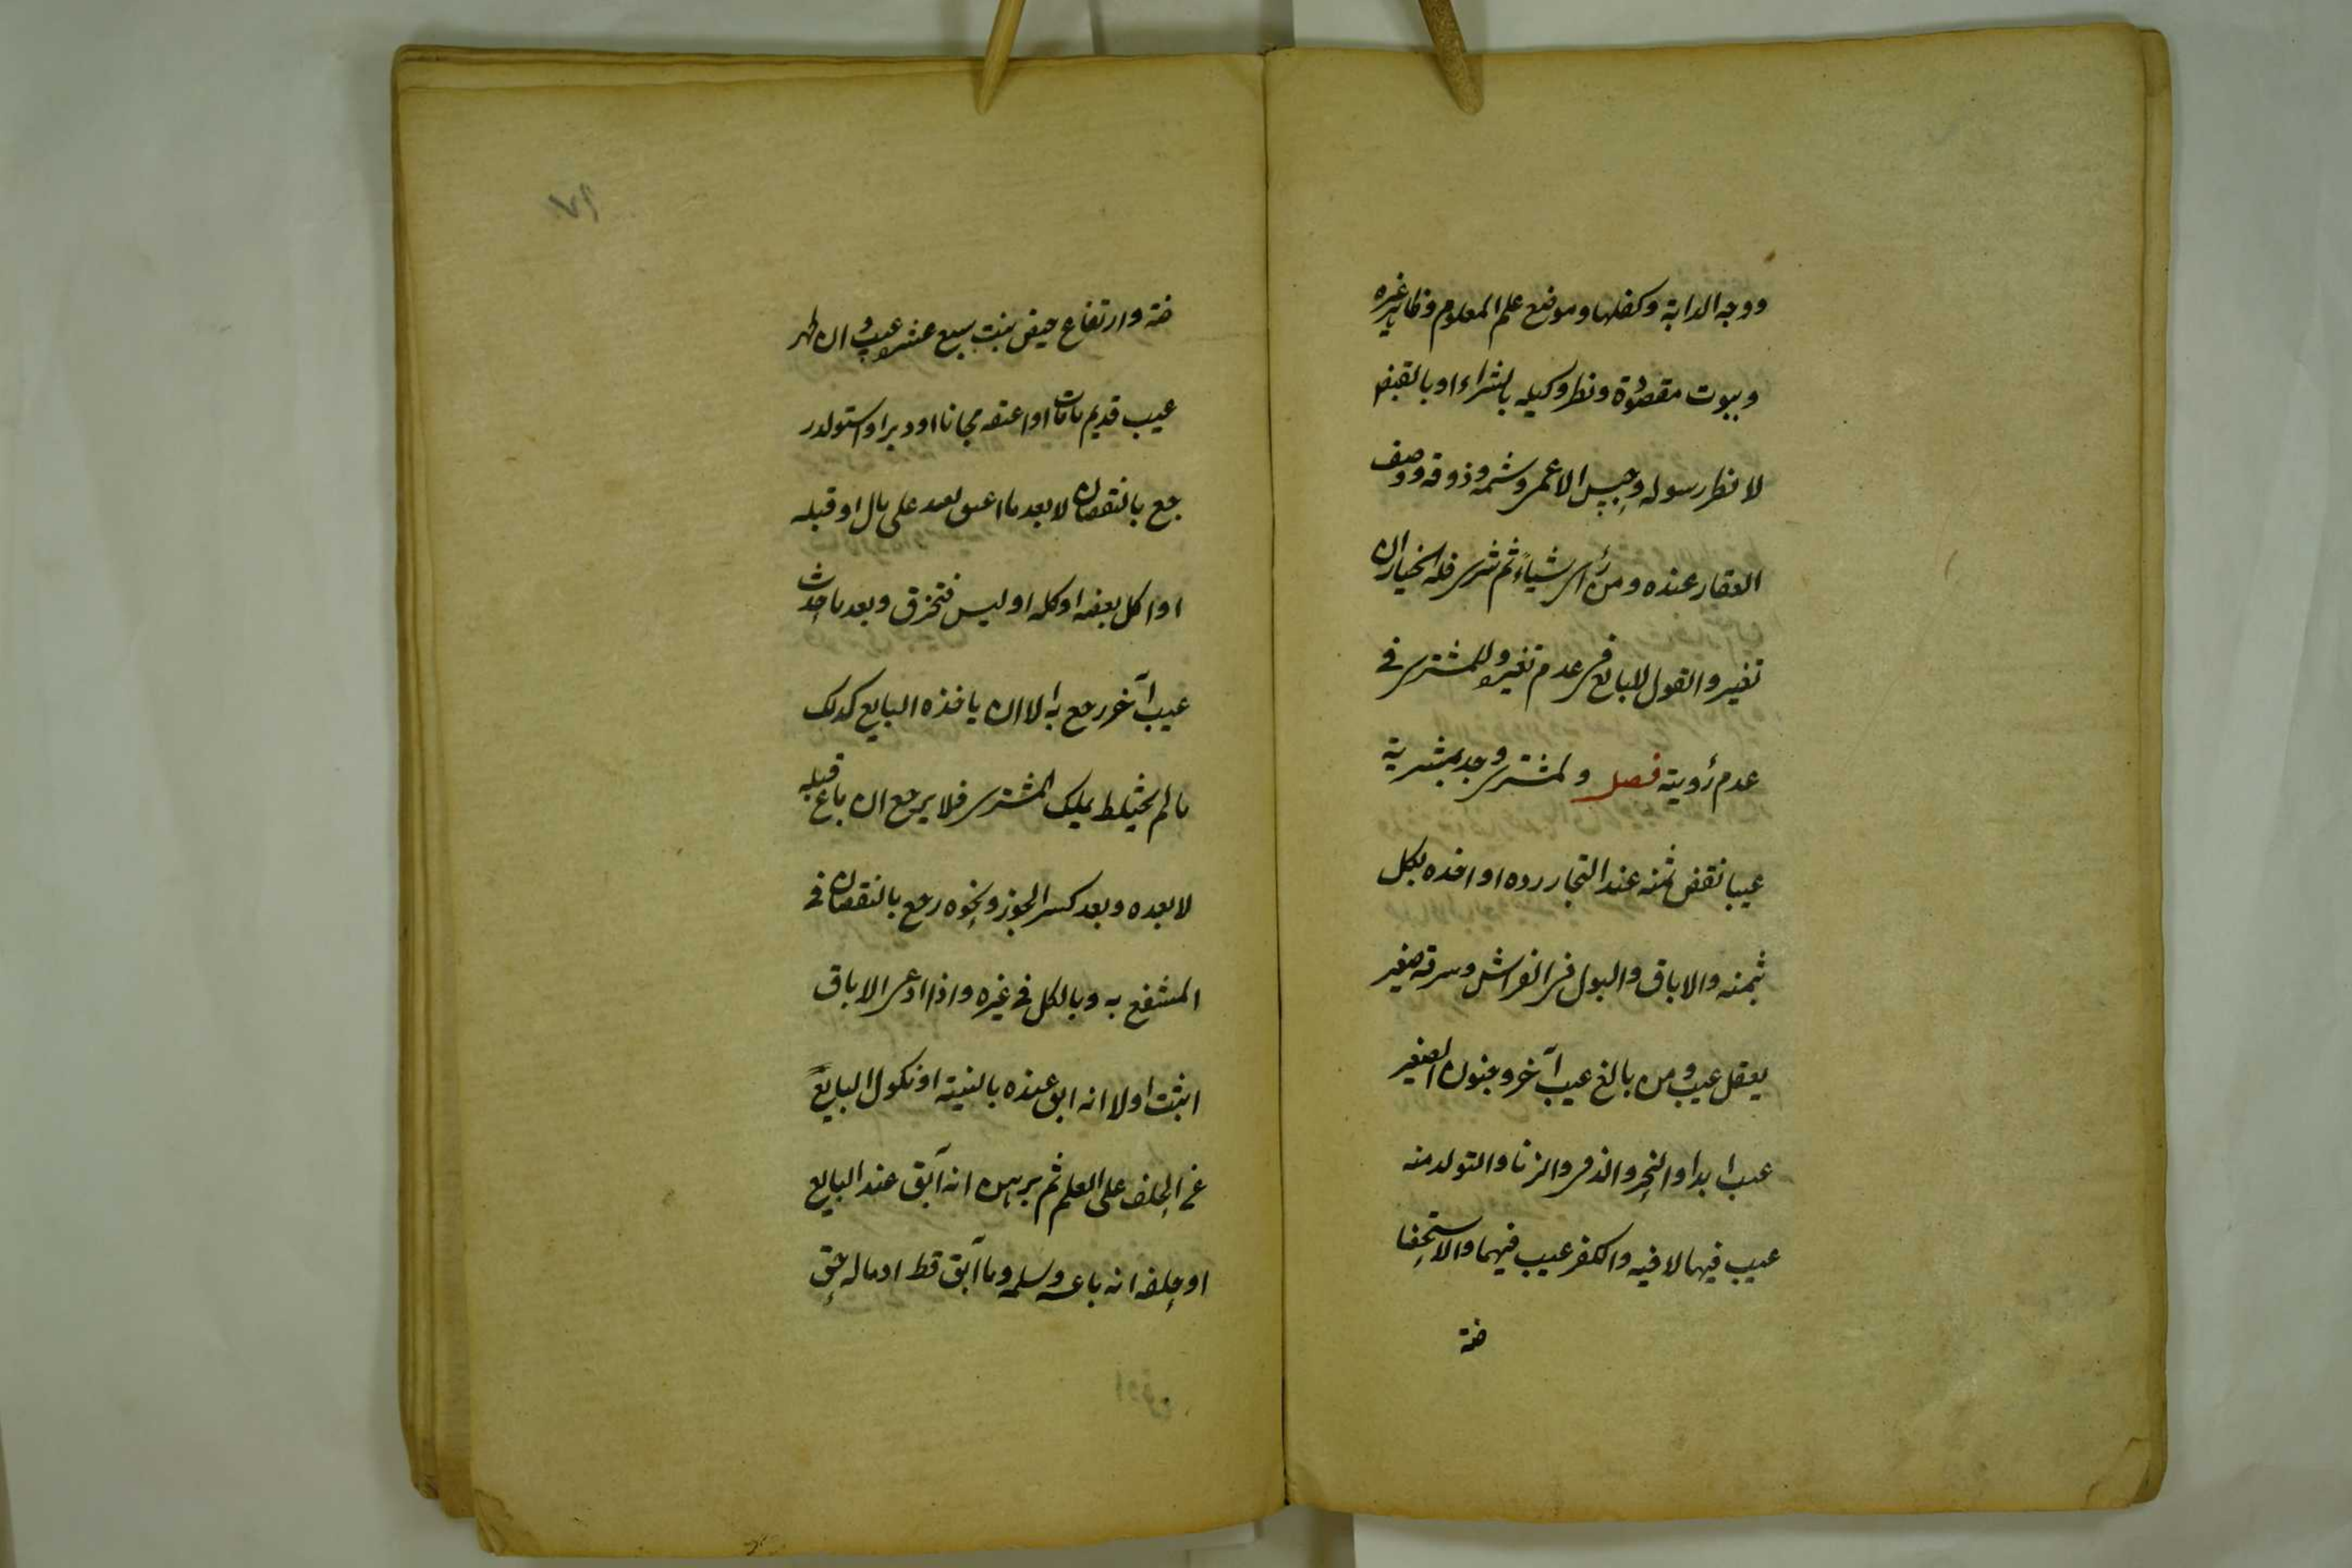 ووجه الدابة وكفلها وموضع علم المعلوم وظاهر غيره
وبيوت مقصورة ونظر وكيله بالشراء او بالقبض
لا نظر رسوله وجس الاعمى وشمه وذوقه ووصف
العقار عنده ومن رأى شيأ ثم شرى فله الخيار ان
تغير والقول للبايع فى عدم تغير وللمشترى فى
عدم رؤيته فصل ولمشترى وجد بمشريه
عيبا نقض ثمنه عند التجار رده او اخذه بكل
ثمنه والاباق والبول فى الفراش وسرقة صغير
يعقل عيب ومن بالغ عيب آخر وجنون الصغير
عيب ابدا والبخر والذفر والزنا والتولد منه
عيب فيها لا فيه والكفر عيب فيهما والاستحا
ضة
ضة وارتفاع حيض بنت سبع عشر عيب وان ظهر
عيب قديم مامات او اعتقه مجانا او دبر او استولد ر
جع بالنقصان لا بعد ما اعتق لعبد على مال او قبله
او اكل بعضه او كله او لبس فتخرق وبعد ما حدث
عيب آخر رجع به الا ان ياخذه البايع كذلك
مالم يختلط بملك المشترى فلا يرجع ان باع قبله
لا بعده وبعد كسر الجوز ونحوه رجع بالنقصان فى
المنتفع به وبالكل فى غيره واذا ادعى الاباق
اثبت اولا انه ابق عنده بالبينة او نكول البايع
عن الحلف على العلم ثم برهن انه آبق عند البايع
او حلفه انه باعه وسلمه وما آبق قط او ماله حق